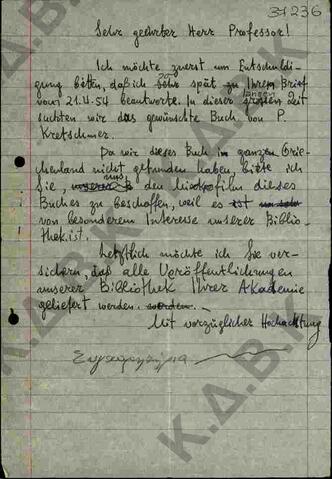 37236
Sehr geehrter Herr Professor!
Ich möchte zuerst um Entschuldi-
gung bitten, daß ich so sehr spät zu Ihrem Brief
vom 21.4.54 beantworte. In dieser langen Zeit
suchten wir das gewünschte Buch von P.
Kretschmer.
Da wir dieses Buch in ganzen Grie-
chenland nicht gefunden haben, bitte ich
Sie, uns den Mikrofilm dieses
Buches zu beschaffen, weil es ist
von besonderem Interesse unserer Biblio-
thek ist.
Letztlich möchte ich Sie ver-
sichern, daß alle Veröffentlichungen
unserer Bibliothek Ihrer Akademie
geliefert werden. werden.-
Mit vorzüglicher Hochachtung
Κ.Δ.Β.Κ